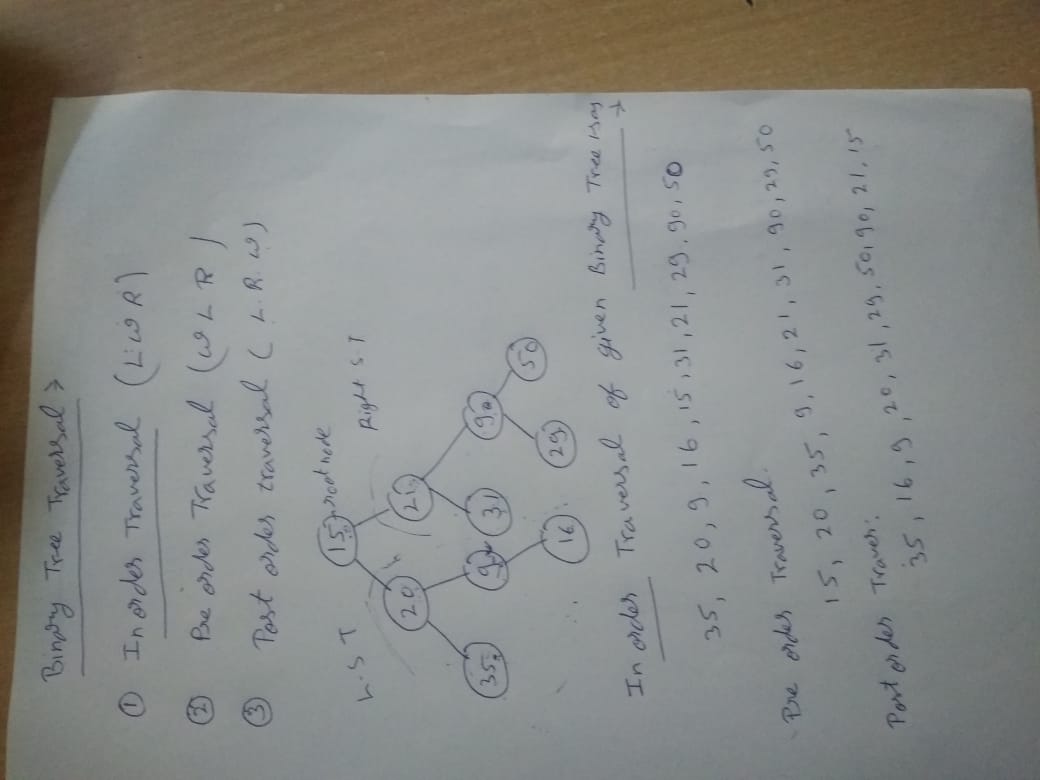 Binary Tree Traversal >
① Inorder Traversal (L: ω R)
② Pre order Traversal (ω L R)
③ Post order traversal (L. R. ω)
L. S T
Right S. T
15 root node
20 21
35 9 31 90
16 29 50
In order Traversal of given Binary Tree
35, 20, 9, 16, 15, 31, 21, 29, 90, 50
Pre order Traversal.
15, 20, 35, 9, 16, 21, 31, 90, 29, 50
Post order Traver:
35, 16, 9, 20, 31, 29, 50, 90, 21, 15